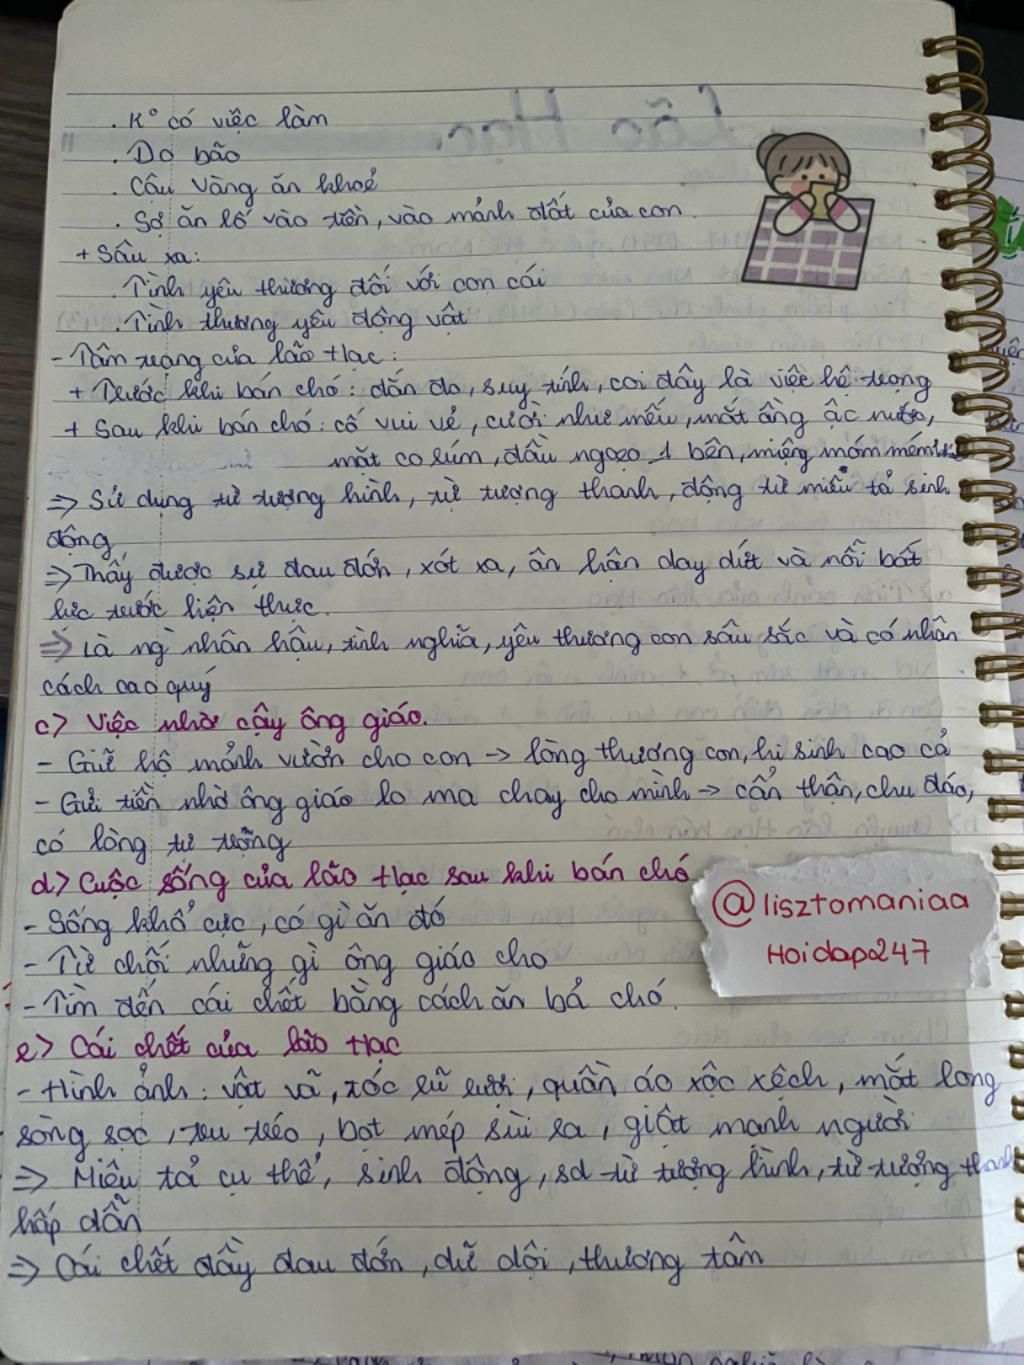 . K° có việc làm
. Do bão
. Cậu Vàng ăn khoẻ
. Sợ ăn lố vào tiền, vào mảnh đất của con.
+ Sâu xa:
. Tình yêu thương đối với con cái
. Tình thương yêu động vật
- Tâm trạng của lão Hạc:
+ Trước khi bán chó: dắn đo, suy tính, coi đây là việc hệ trọng
+ Sau khi bán chó: cố vui vẻ, cười như mếu, mắt ầng ậc nước,
mặt co rúm, đầu ngoẹo 1 bên, miệng móm mém
=> Sử dụng từ tượng hình, từ tượng thanh, động từ miêu tả sinh
động
=> Thấy được sự đau đớn, xót xa, ân hận day dứt và nỗi bất
lực trước hiện thực.
=> Là ng` nhân hậu, tình nghĩa, yêu thương con sâu sắc và có nhân
cách cao quý
c> Việc nhờ cậy ông giáo.
- Giữ hộ mảnh vườn cho con -> lòng thương con, hi sinh cao cả
- Gửi tiền nhờ ông giáo lo ma chay cho mình -> cẩn thận, chu đáo,
có lòng tự trọng
d> Cuộc sống của lão Hạc sau khi bán chó
- Sống khổ cực, có gì ăn đó
- Từ chối những gì ông giáo cho
- Tìm đến cái chết bằng cách ăn bả chó.
@lisztomaniaa
Hoidap247
e> Cái chết của lão Hạc
- Hình ảnh: vật vã, tóc rũ rượi, quần áo xộc xệch, mắt long
sòng sọc, tru tréo, bọt mép sùi ra, giật mạnh người
=> Miêu tả cụ thể, sinh động, sd từ tượng hình, từ tượng thanh
hấp dẫn
=> Cái chết đầy đau đớn, dữ dội, thương tâm